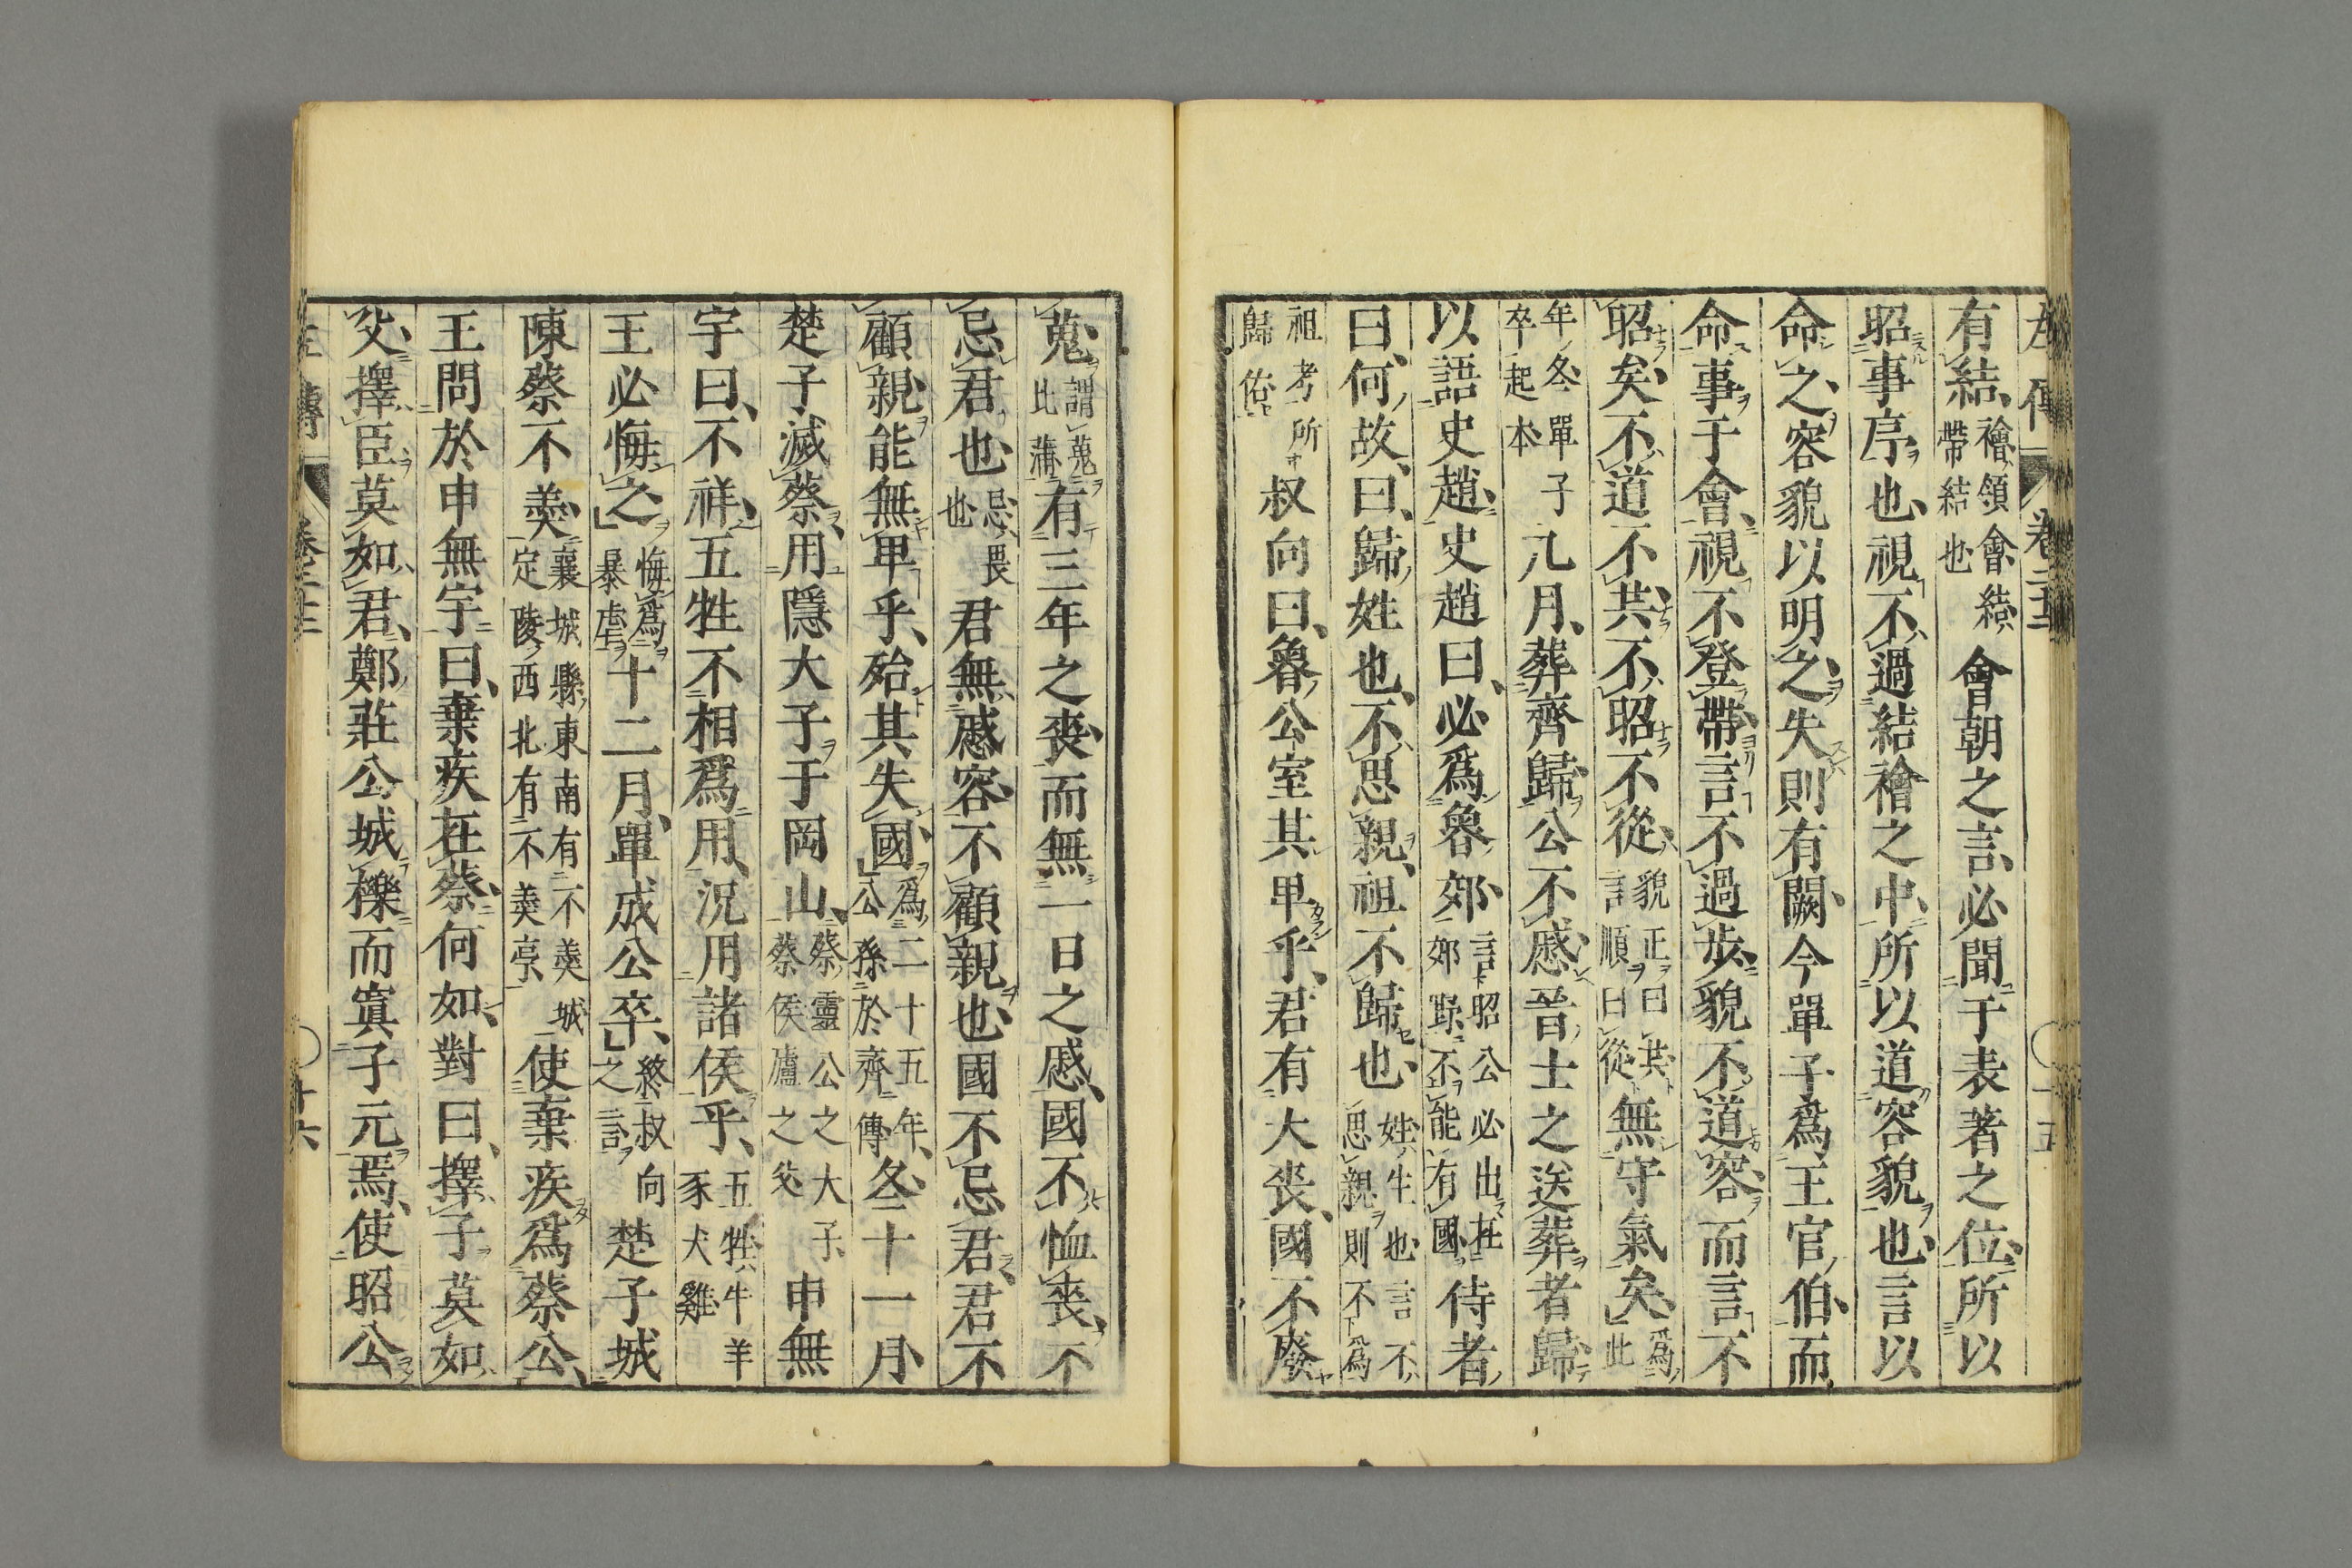 左傳 卷二十二 〇十五
有結襘領會結帶結也會朝之言必聞于表著之位所以
昭事序也視不過結襘之中所以道容貌也言以
命之容貌以明之失則有闕今單子爲王官伯而
命事于會視不登帶言不過步貌不道容而言不
昭矣不道不共不昭不從貌正曰共言順曰從無守氣矣爲此
年冬單子卒起本九月葬齊歸公不慼晉士之送葬者歸
以語史趙史趙曰必爲魯郊言昭公必出在郊野不能有國侍者
曰何故曰歸姓也不思親祖不歸也姓生也言不思親則不爲
祖考所歸佑叔向曰魯公室其卑乎君有大喪國不廢
蒐謂蒐比蒲有三年之喪而無一日之慼國不恤喪不
忌君也忌畏也君無慼容不顧親也國不忌君君不
顧親能無卑乎殆其失國爲二十五年公孫於齊傳冬十一月
楚子滅蔡用隱大子于岡山蔡靈公之大子蔡侯廬之父申無
宇曰不祥五牲不相爲用況用諸侯乎五牲牛羊豕犬雞
王必悔之悔爲暴虐十二月單成公卒終叔向之言楚子城
陳蔡不羹襄城縣東南有不羹城定陵西北有不羹亭使棄疾爲蔡公
王問於申無宇曰棄疾在蔡何如對曰擇子莫如
父擇臣莫如君鄭莊公城櫟而寘子元焉使昭公
左傳 卷二十二 〇十六